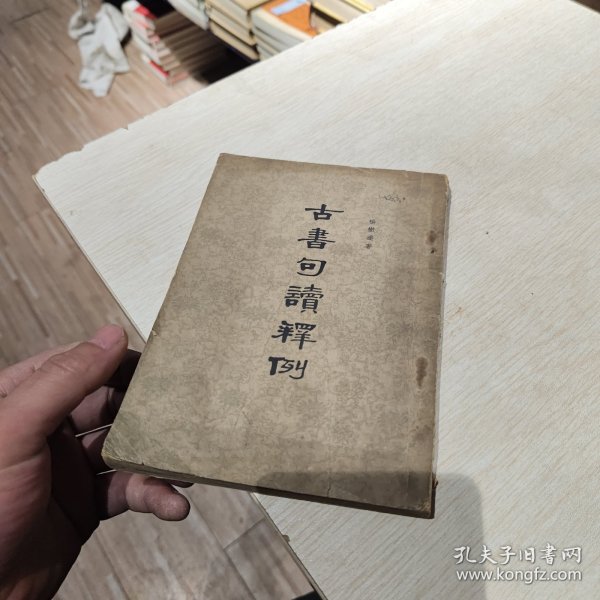 楊樹達著
古書句讀釋例
孔夫子旧书网
www.kongfz.com